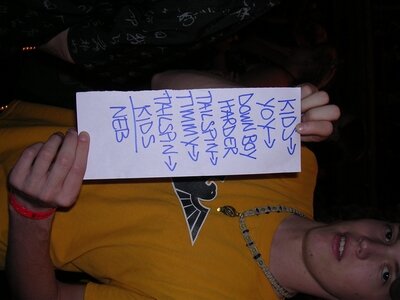 KIDS→
YOY→
DOWN BOY
HARDER
TAILSPIN→
TIMMY→
TAILSPIN→
KIDS
NEB